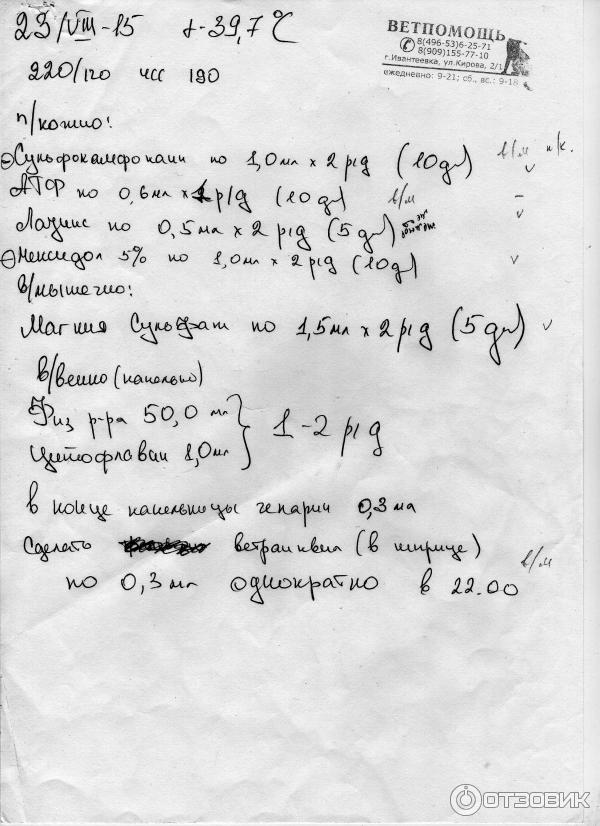 23/VIII-15 t-39,7°C
ВЕТПОМОЩЬ
8(496-53)6-25-71
8(909)155-77-10
г.Ивантеевка, ул.Кирова, 2/1
ежедневно: 9-21; сб., вс.: 9-18
220/120 чсс 190
п/кожно:
Сульфокамфокаин по 1,0 мл x 2 р/д (10 дн) в/м п/к.
АТФ по 0,6 мл x 1 р/д (10 дн) в/м –
Лазикс по 0,5 мл x 2 р/д (5 дн)
Мексидол 5% по 1,0 мл x 2 р/д (10 дн)
в/мышечно:
Магния Сульфат по 1,5 мл x 2 р/д (5 дн)
в/венно (капельно)
Физ р-ра 50,0 мл
Цитофлавин 1,0 мл
1-2 р/д
в конце капельницы гепарин 0,3 мл
Сделать ветранквил (в шприце)
по 0,3 мл однократно в 22.00 в/м
ОТЗОВИК